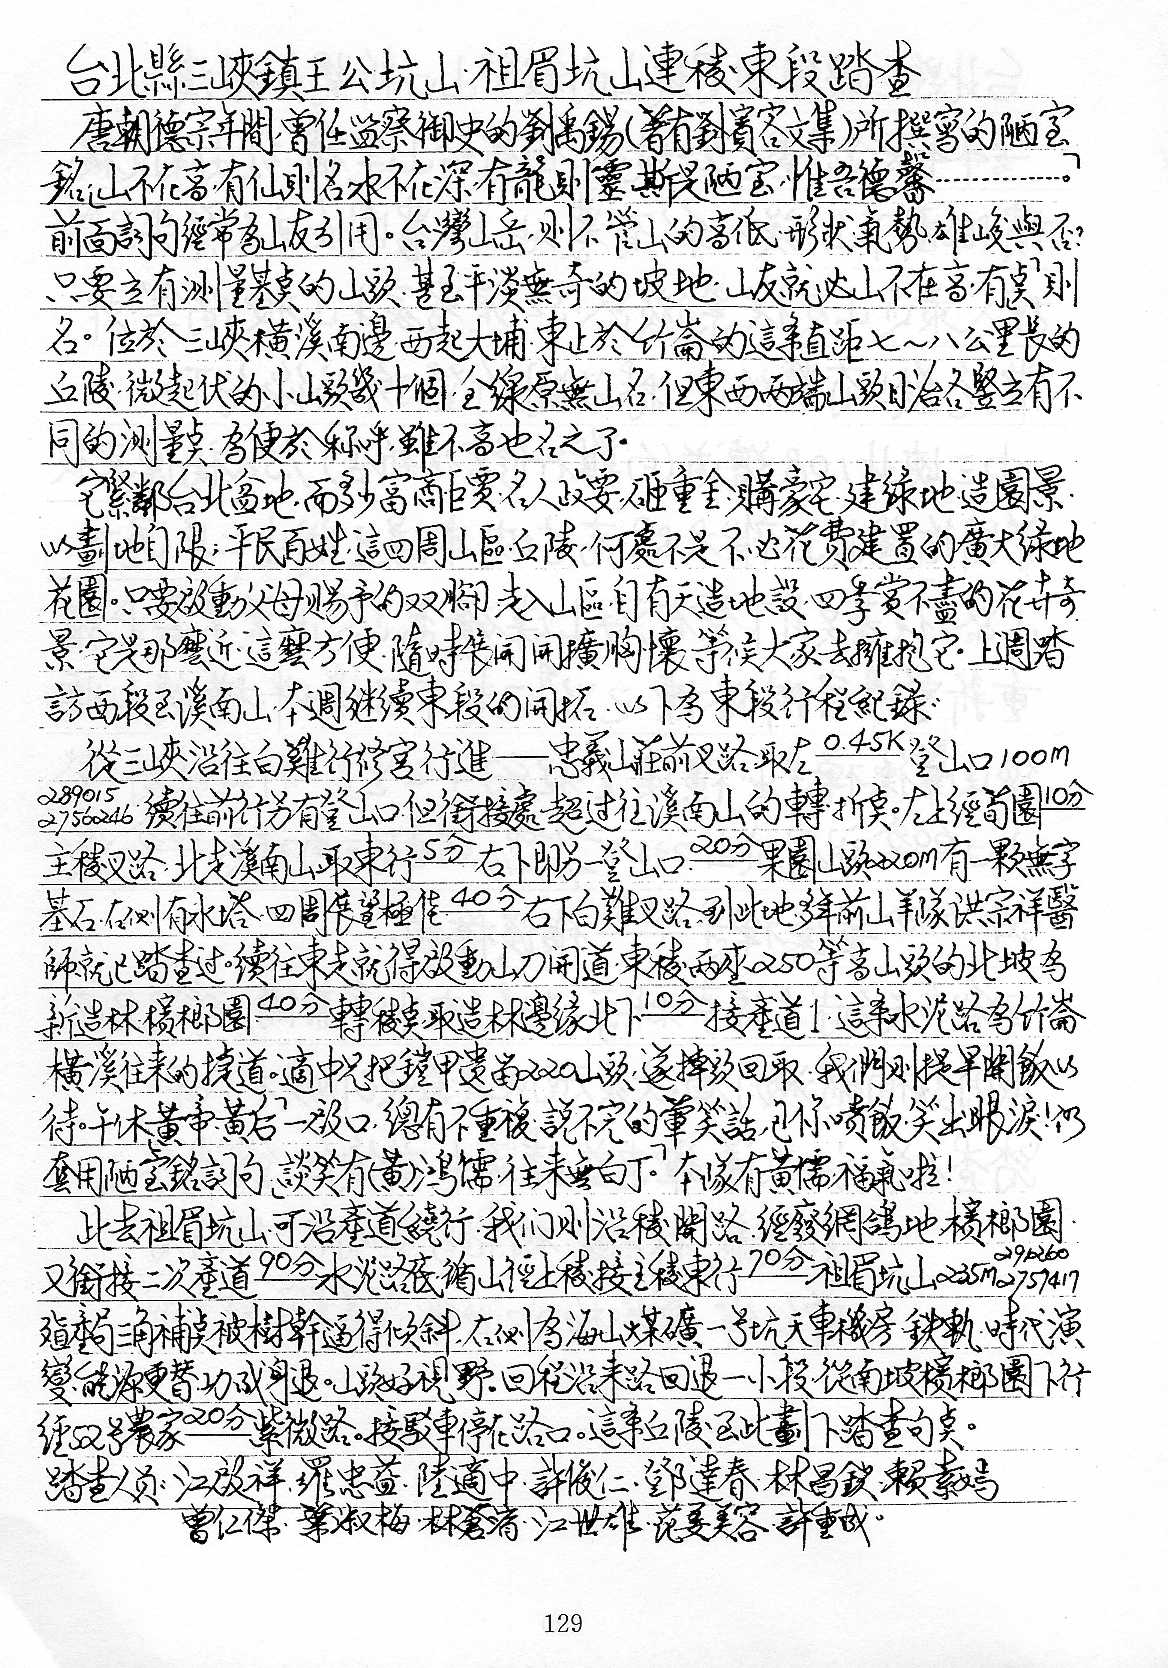 台北縣三峽鎮王公坑山.祖眉坑山連稜.東段踏查
唐朝德宗年間.曾任監察御史的劉禹錫(著有劉賓客文集)所撰寫的陋室
銘「山不在高.有仙則名.水不在深.有龍則靈.斯是陋室.惟吾德馨……………。」
前面詞句經常為山友引用。台灣山岳.則不管山的高低.形狀.氣勢.雄峻與否?
只要立有測量基點的山頭.甚至平淡無奇的坡地.山友就以山不在高.有「點」則
名。位於三峽橫溪南邊.西起大埔.東止於竹崙的這条直距七～八公里長的
丘陵.微起伏的小山頭幾十個.全線原無山名.但東西兩端山頭日治各豎立有不
同的測量點.為便於称呼.雖不高也名之了。
它緊鄰台北盆地.而多少富商巨賈.名人政要.砸重金.購豪宅.建綠地.造園景.
以劃地自限;平民百姓.這四周山區.丘陵.何處不是不必花費建置的廣大綠地
花園。只要啟動父母賜予的双腳.走入山區.自有天造地設.四季賞不盡的花卉奇
景.它是那麼近.這麼方便.隨時長開開擴胸懷.等候大家去擁抱它。上週踏
訪西段至溪南山.本週继續東段的開拓.以下為東段行程紀錄:
從三峽沿往白雞行修宮行進——忠義山莊前叉路取左 0.45K 登山口100m
289015
2756246 續往前行另有登山口.但銜接處超过往溪南山的轉折點。左上經筍園 10分
主稜叉路.北走溪南山.取東行 5分 右下即另一登山口 20分 果園山頭220m有一顆無字
基石.右側有水塔.四周展望極佳 40分 右下白雞叉路.到此地.多年前山羊隊洪宗祥醫
師就已踏查过。續往東走就得啟動山刀開道.東稜.兩座250等高山頭的北坡為
新造林檳榔園 40分 轉稜點取造林邊緣北下 10分 接產道1.這条水泥路為竹崙
橫溪往來的捷道。適中兄把鎧甲遺留220山頭.遂掉頭回取.我們則提早開飯以
待。午休「黃帝.黃后」一啟口.總有不重複.說不完的葷笑話.包你噴飯.笑出眼淚!仍
套用陋室銘詞句「談笑有(黃)鴻儒.往來無白丁。」本隊有黃儒.福氣啦!
此去祖眉坑山.可沿產道繞行.我们則沿稜開路.經廢網鴿地.檳榔園.
又銜接二次產道 90分 水泥路底循山徑上稜接主稜東行 70分 祖眉坑山235m 296260
2757417
殖產局三角補點被樹幹逼得傾斜.右側為海山煤礦一号坑天車機房.鉄軌.時代演
變.能源更替.功成身退。山頭好視野。回程沿来路回退一小段.從南坡檳榔園下行
經52号農家 20分 紫微路。接駁車停在路口。這条丘陵至此劃下踏查句點。
踏查人员:江啟祥.羅忠益.陸適中.許俊仁.鄧達春.林昌鎖.賴素嫣
曾仁傑.葉淑梅.林蒼清.江世雄.范姜美容.許重成.
129